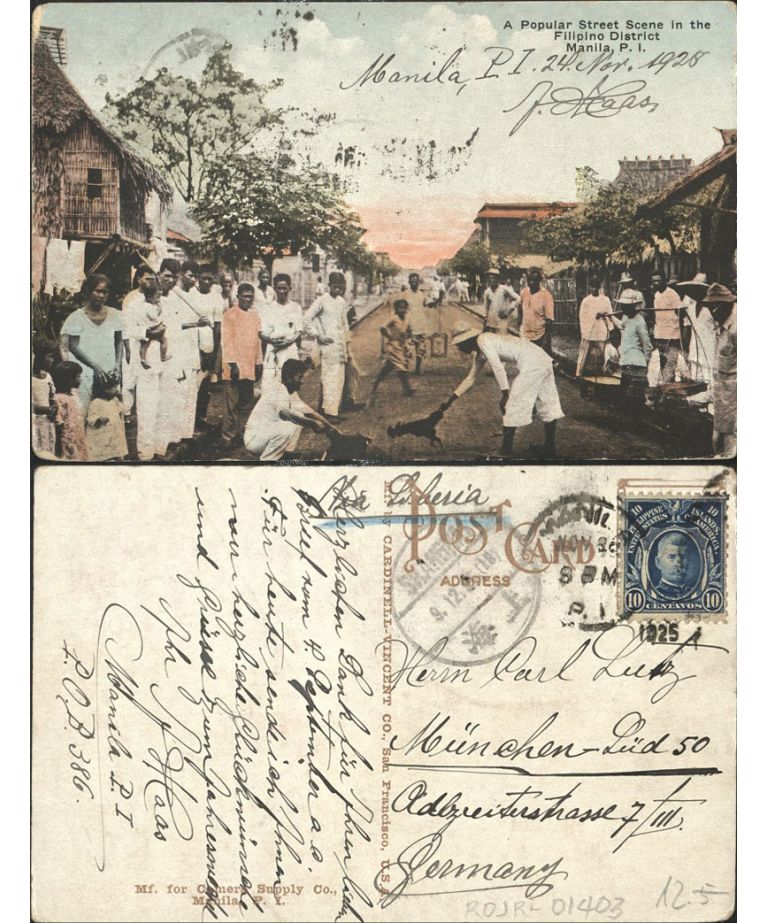 A Popular Street Scene in the
Filipino District
Manila, P. I.
Manila, P. I. 24. Nov. 1925
J. Haas
Via Siberia
POST CARD
ADDRESS
MANILA
NOV 26
8 PM
P. I.
1925
10 10
PHILIPPINE ISLANDS
UNITED STATES OF AMERICA
10 CENTAVOS 10
SHANGHAI
9.12.25
上海
Herzlichen Dank für Ihren lieben
Brief vom 4. September a.c.
Für heute sende ich Ihnen
nur herzliche Glückwünsche
und Grüsse zum Jahreswechsel
Ihr J. Haas
Manila P. I
P.O.B. 386.
MFD. BY CARDINELL-VINCENT CO., San Francisco, U.S.A.
Herrn Carl Lutz
München-Süd 50
Adlzreiterstrasse 7/III.
Germany
Mf. for Camera Supply Co.,
Manila, P. I.
ROJR-01403
12.5